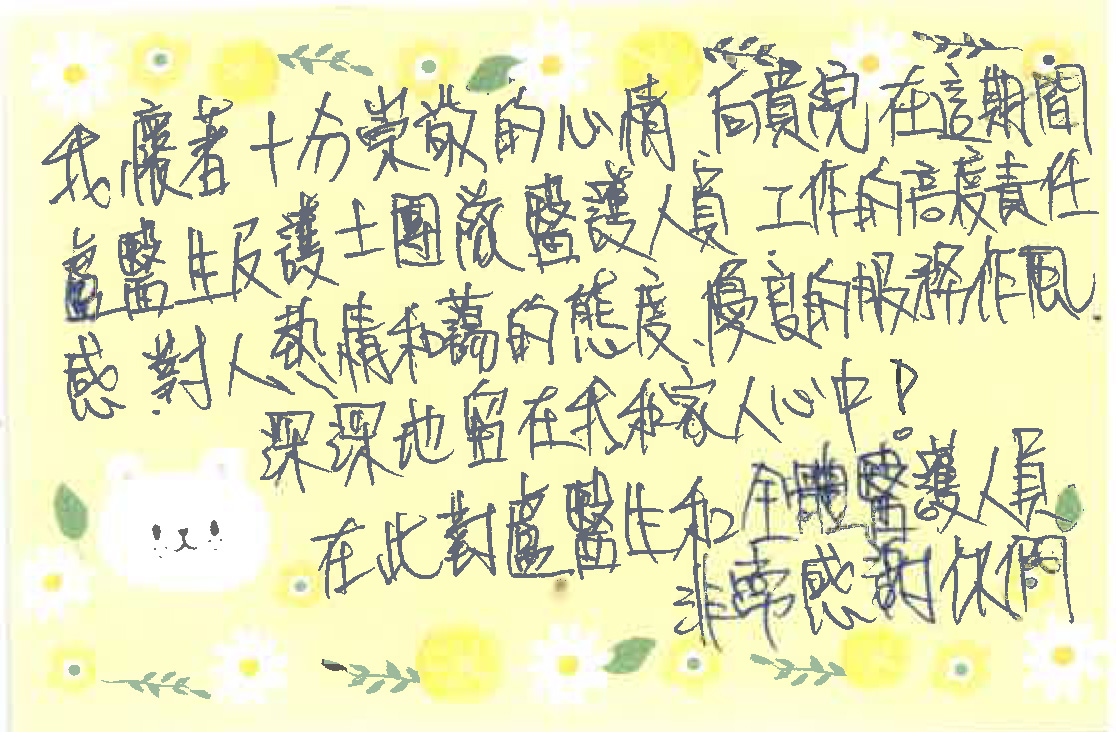 我懷著十分榮敬的心情 向貴院在這期間
盧醫生及護士團隊醫護人員 工作的高度責任
感.對人熱情和藹的態度、優良的服務作風
深深地留在我和家人心中!
在此對盧醫生和全體醫護人員
非常感謝你們